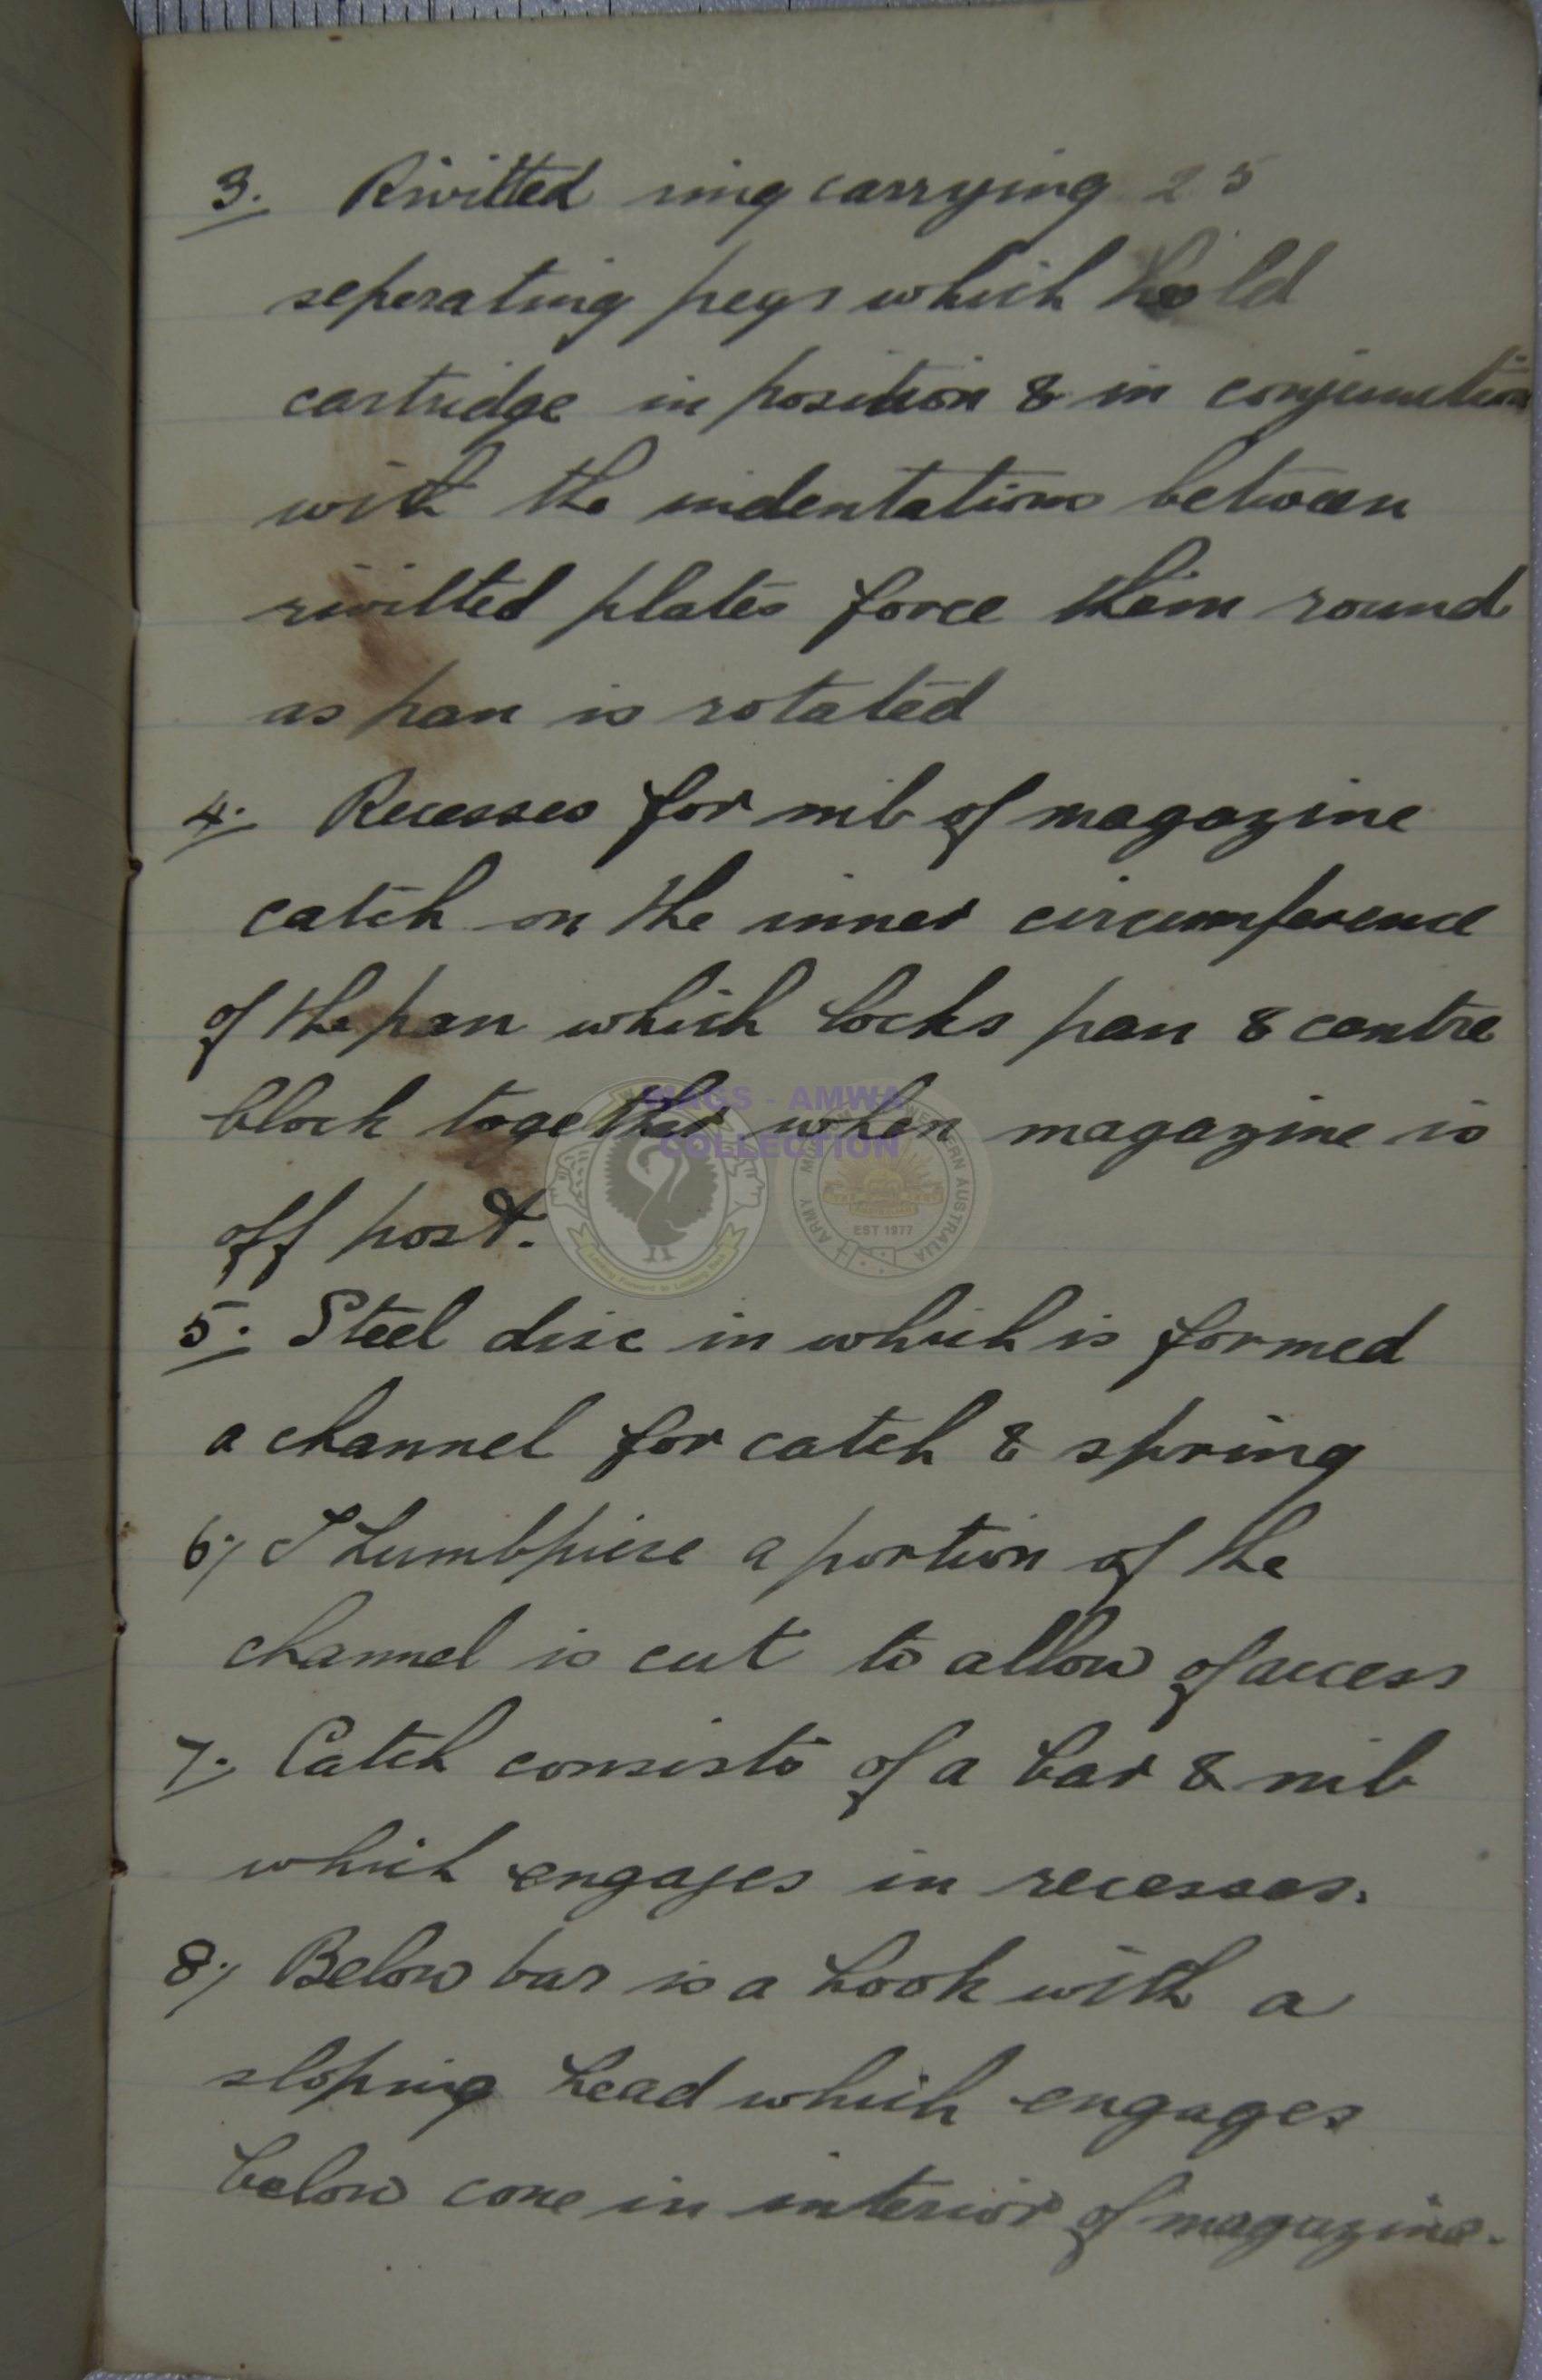 3. Rivitted ring carrying 25
seperating pegs which hold
cartridge in position & in conjunction
with the indentations between
rivitted plates force them round
as pan is rotated
4. Recesses for nib of magazine
catch on the inner circumference
of the pan which locks pan & centre
block together when magazine is
off post.
5. Steel disc in which is formed
a channel for catch & spring
6. Thumbpiece a portion of the
channel is cut to allow of access
7. Catch consists of a bar & nib
which engages in recesses.
8. Below bar is a hook with a
sloping head which engages
below cone in interior of magazine.
MAGS - AMWA
COLLECTION
EST 1977